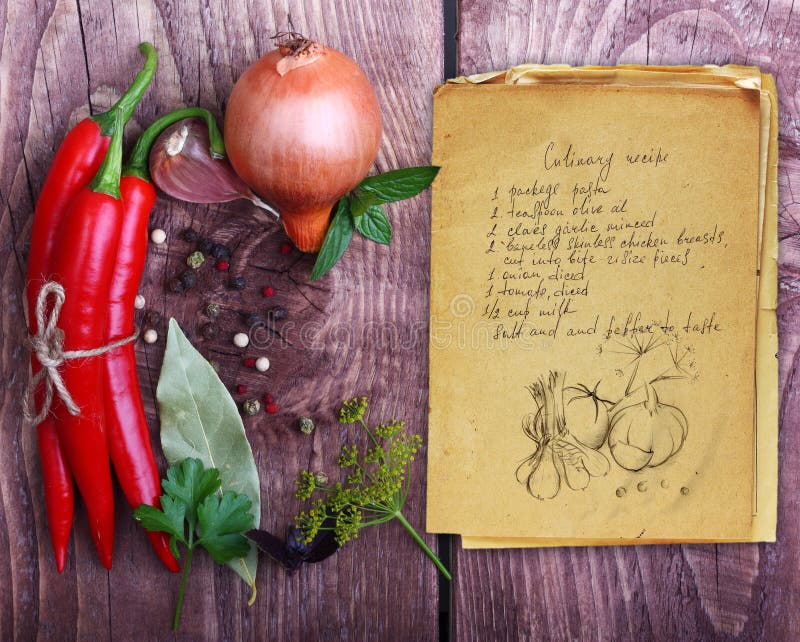 Culinary recipe
1 packege pasta
2 teaspoon olive oil
2 claves garlic minced
2 boneless skinless chicken breasts,
cut into bite-size pieces
1 onion, diced
1 tomato, diced
1/2 cup milk
Salt and and pepper to taste
dreamstime